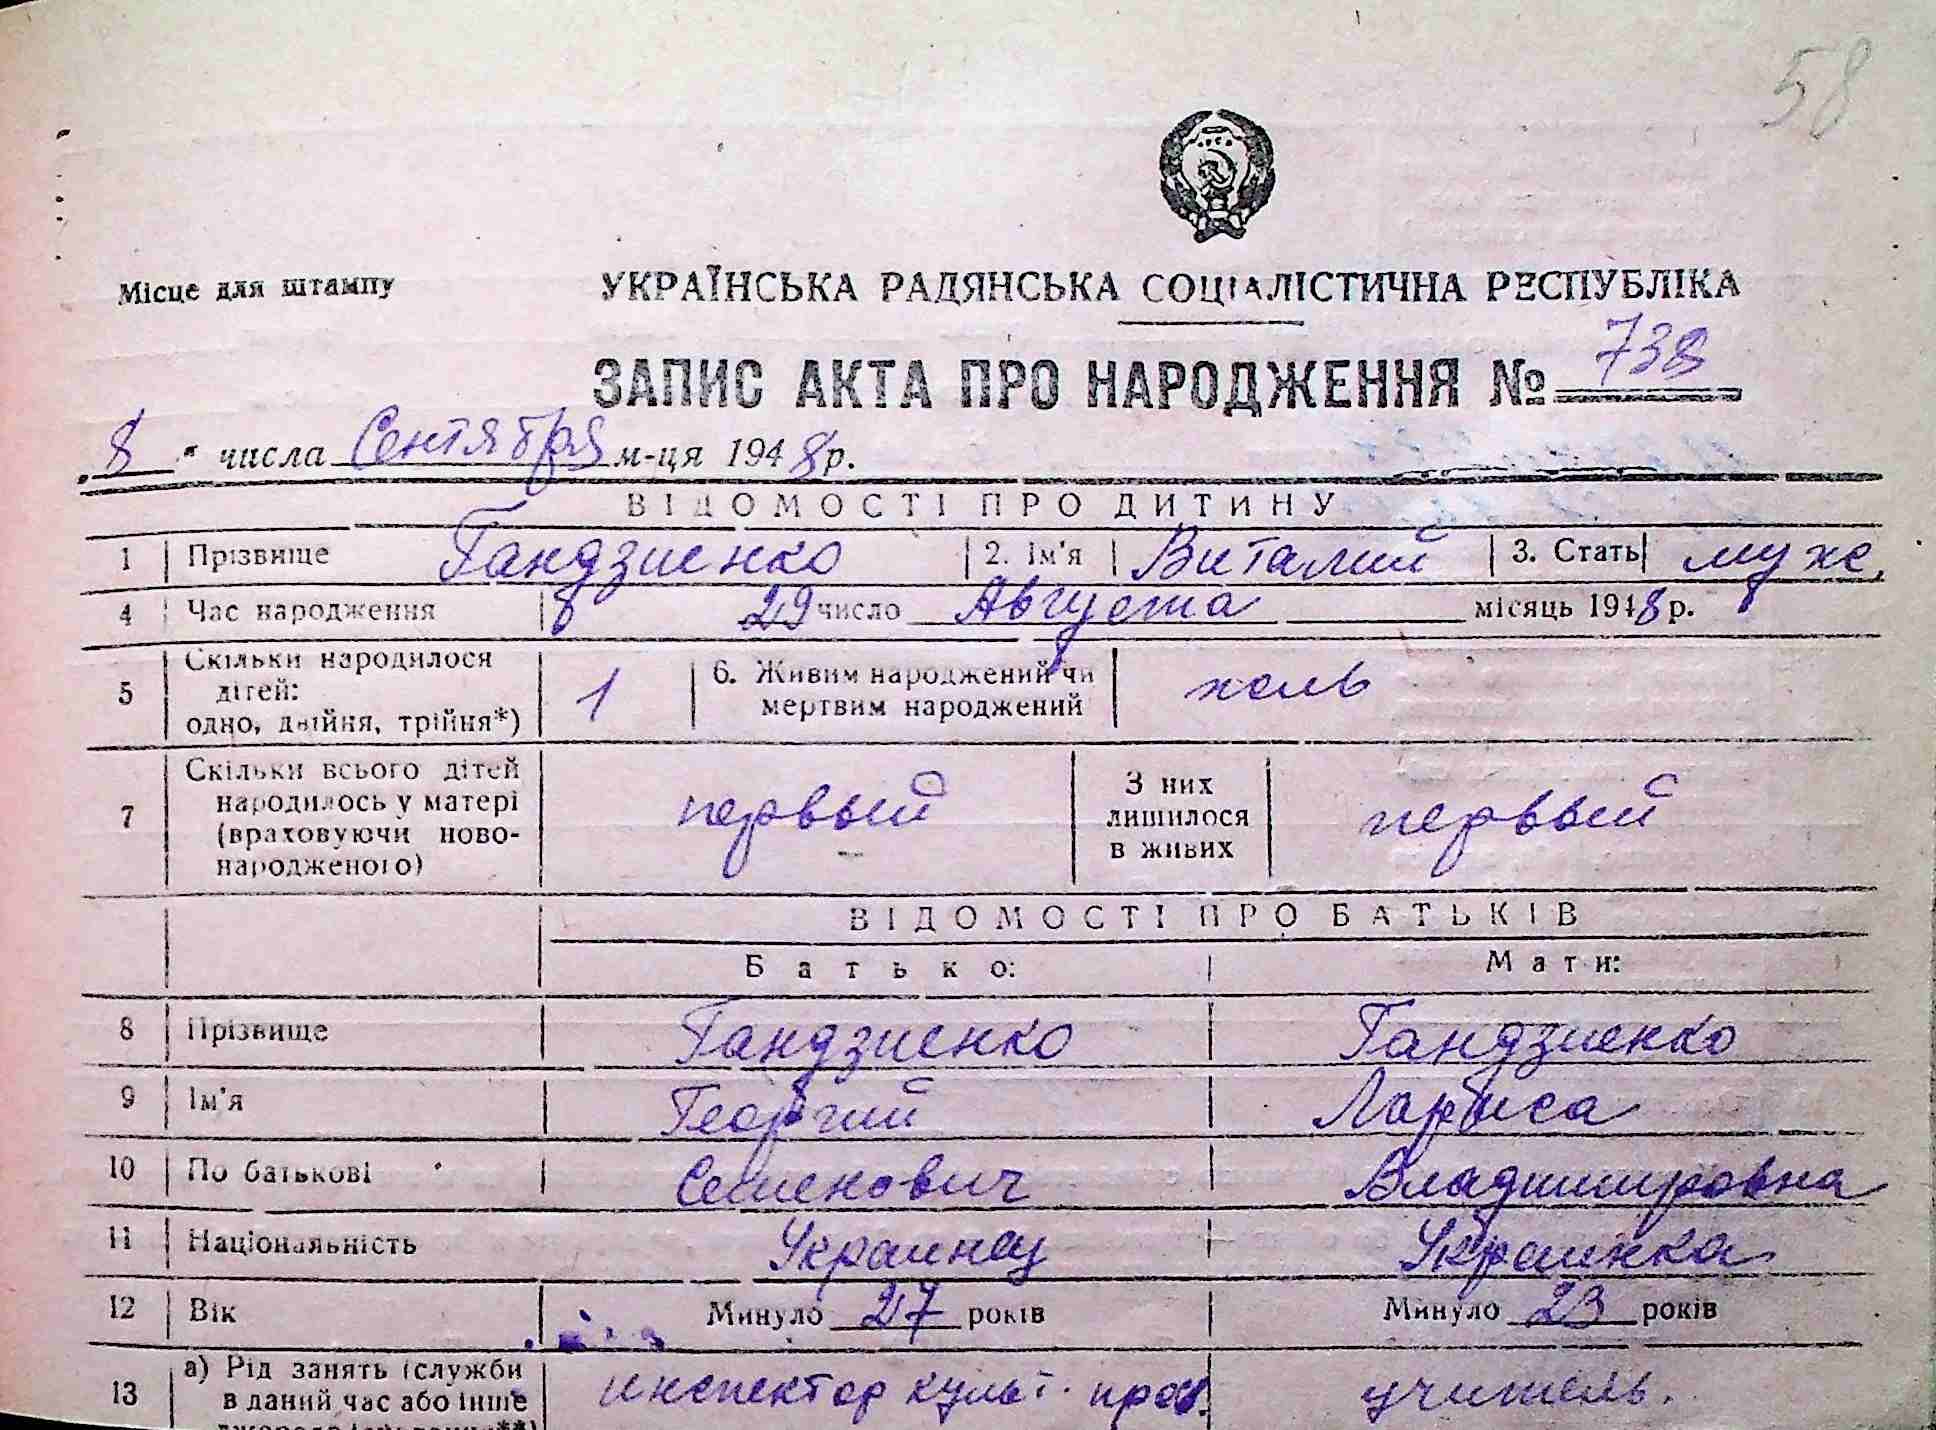 58
Місце для штампу
УКРАЇНСЬКА РАДЯНСЬКА СОЦІАЛІСТИЧНА РЕСПУБЛІКА
ЗАПИС АКТА ПРО НАРОДЖЕННЯ № 738
8 " числа Сентября м-ця 1948 р.
ВІДОМОСТІ ПРО ДИТИНУ
1 Прізвище Гандзиенко 2. Ім'я Виталий 3. Стать муж.
4 Час народження 29 число Августа місяць 1948 р.
5 Скільки народилося дітей: одно, двійня, трійня*) 1 6. Живим народжений чи мертвим народжений
7 Скільки всього дітей народилось у матері (враховуючи ново-народженого) первый З них лишилося в живих первый
ВІДОМОСТІ ПРО БАТЬКІВ
Батько: Мати:
8 Прізвище Гандзиенко Гандзиенко
9 Ім'я Георгий Лариса
10 По батькові Семенович Владимировна
11 Національність Украинец Украинка
12 Вік Минуло 27 років Минуло 23 років
13 а) Рід занять (служби в даний час або інше инспектор культ. прос. учитель.